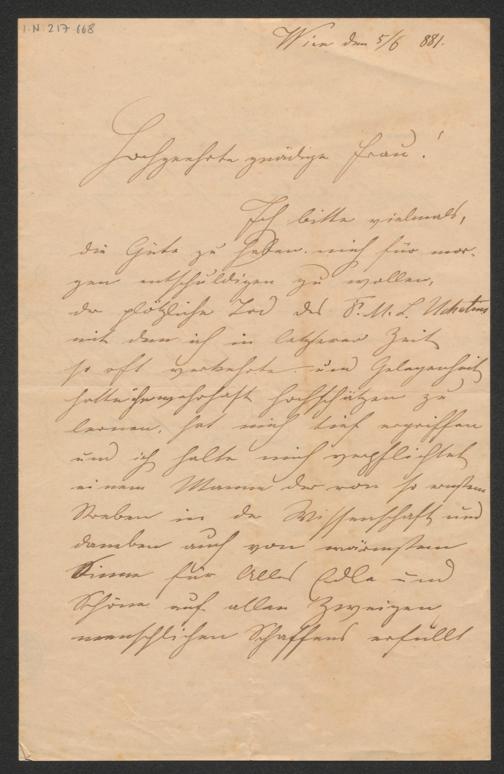 I.N. 217.668
Wien den 5/6 881.
Hochgeehrte gnädige Frau!
Ich bitte vielmals,
die Güte zu haben mich für mor-
gen entschuldigen zu wollen,
der plötzliche Tod des F.M.L. Uchatius
mit dem ich in letzterer Zeit
so oft verkehrte und Gelegenheit
hatte ihn wahrhaft hochschätzen zu
lernen, hat mich tief ergriffen
und ich halte mich verpflichtet
einem Manne der von so ernstem
Streben in der Wissenschaft und
daneben auch von wärmstem
Sinne für Alles Edle und
Schöne auf allen Zweigen
menschlichen Schaffens erfüllt